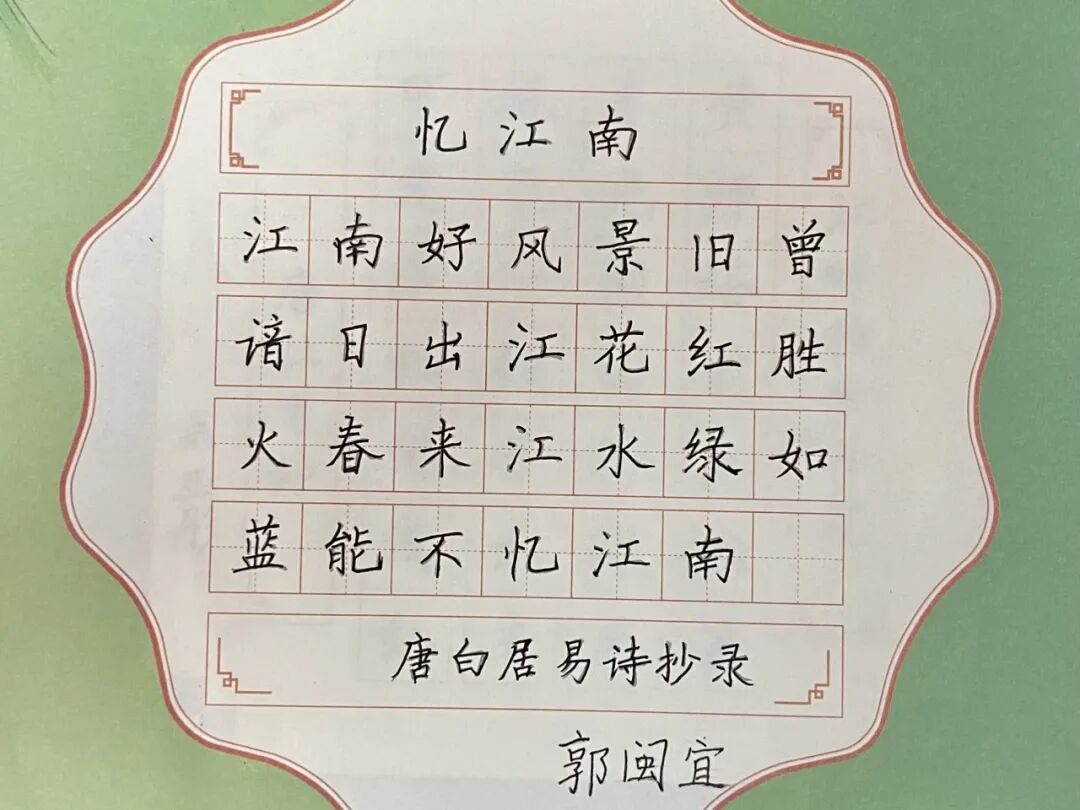 忆江南
江南好风景旧曾
谙日出江花红胜
火春来江水绿如
蓝能不忆江南
唐白居易诗抄录
郭闽宜